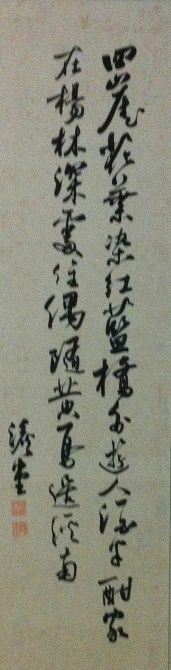 四崖葉染紅藍橋外遊人酒半酣家
在楊林深處住偶隨黄鳥過溪南